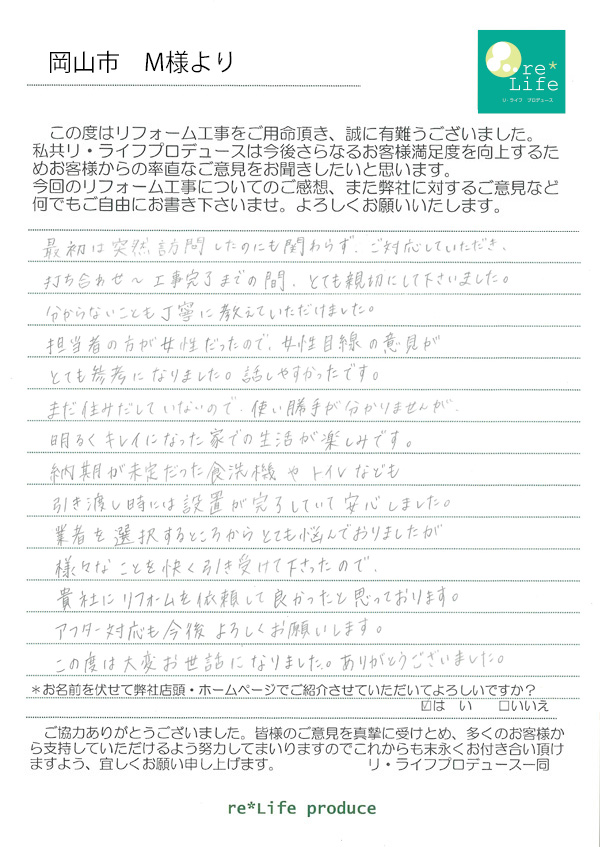 岡山市 M様より
re*
Life
リ・ライフ プロデュース
この度はリフォーム工事をご用命頂き、誠に有難うございました。
私共リ・ライフプロデュースは今後さらなるお客様満足度を向上するた
めお客様からの率直なご意見をお聞きしたいと思います。
今回のリフォーム工事についてのご感想、また弊社に対するご意見など
何でもご自由にお書き下さいませ。よろしくお願いいたします。
最初は突然訪問したのにも関わらず、ご対応していただき、
打ち合わせ〜工事完了までの間、とても親切にして下さいました。
分からないことも丁寧に教えていただけました。
担当者の方が女性だったので、女性目線の意見が
とても参考になりました。話しやすかったです。
まだ住みだしていないので、使い勝手が分かりませんが、
明るくキレイになった家での生活が楽しみです。
納期が未定だった食洗機やトイレなども
引き渡し時には設置が完了していて安心しました。
業者を選択するところからとても悩んでおりましたが
様々なことを快く引き受けて下さったので、
貴社にリフォームを依頼して良かったと思っております。
アフター対応も今後よろしくお願いします。
この度は大変お世話になりました。ありがとうございました。
*お名前を伏せて弊社店頭・ホームページでご紹介させていただいてよろしいですか?
☑は い □いいえ
ご協力ありがとうございました。皆様のご意見を真摯に受けとめ、多くのお客様か
ら支持していただけるよう努力してまいりますのでこれからも末永くお付き合い頂け
ますよう、宜しくお願い申し上げます。 リ・ライフプロデュース一同
re*Life produce